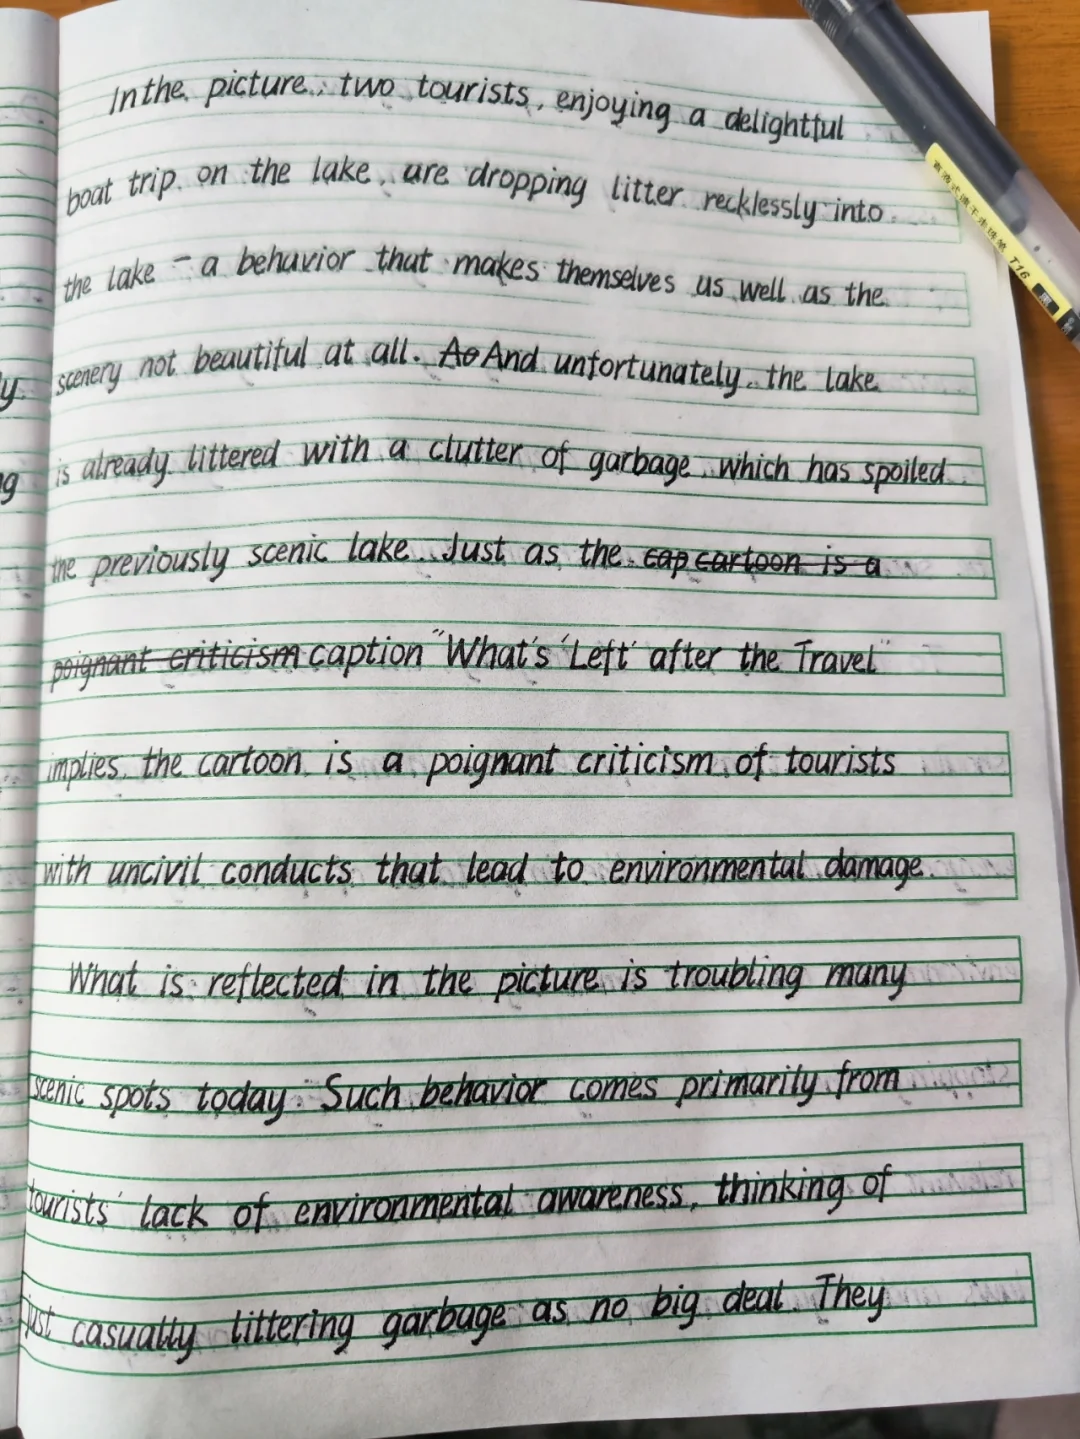 In the picture, two tourists, enjoying a delightful
boat trip on the lake, are dropping litter recklessly into
the lake - a behavior that makes themselves us well as the
scenery not beautiful at all. Ao And unfortunately, the lake
y.
is already littered with a clutter of garbage, which has spoiled
g
the previously scenic lake. Just as the cap cartoon is a
poignant criticism caption "What's 'Left' after the Travel"
implies, the cartoon is a poignant criticism of tourists
with uncivil conducts that lead to environmental damage.
What is reflected in the picture is troubling many
scenic spots today. Such behavior comes primarily from
tourists' lack of environmental awareness, thinking of
just casually littering garbage as no big deal. They
直液式速干走珠笔 T16 黑